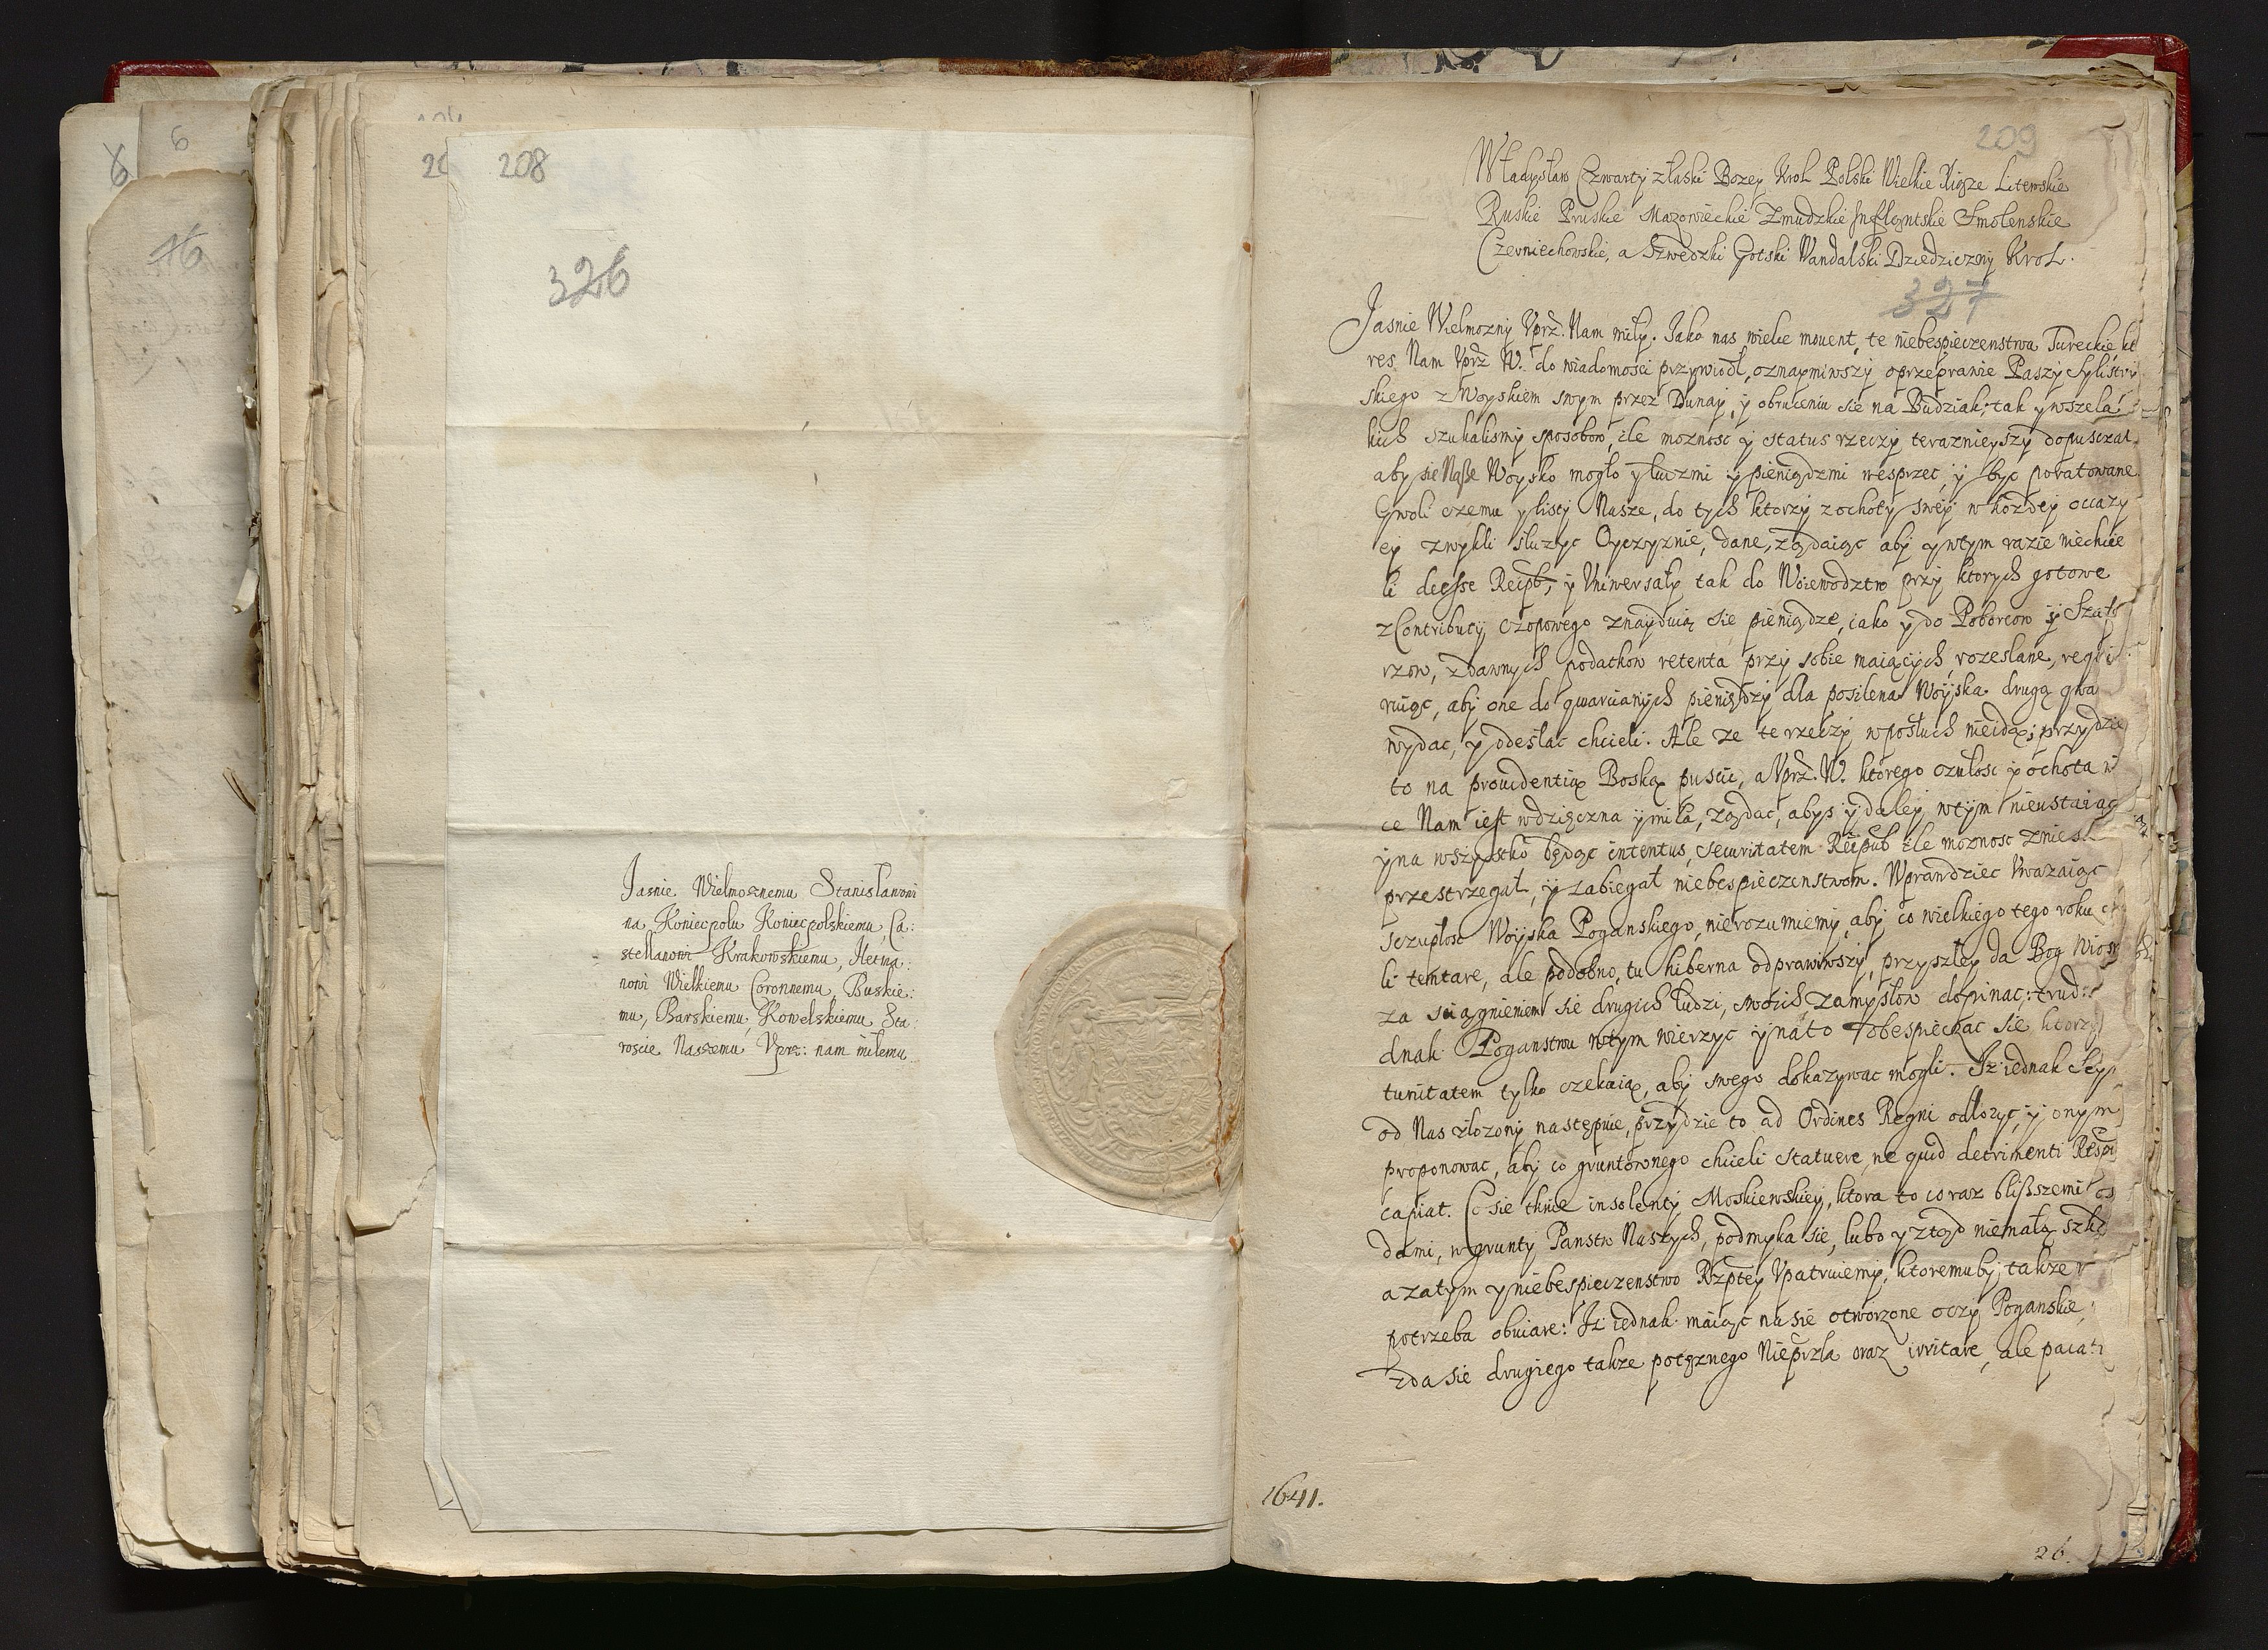 208
326
Jasnie Wielmosznemu Stanisławowi
na Koniecpolu Koniecpolskiemu, Ca:
stellanowi Krakowskiemu, Hetma:
nowi Wielkiemu Coronnemu, Buskie:
mu, Barskiemu, Kowelskiemu Sta:
roscie Naszemu Vprz: nam miłemu.
209
Władysław Czwarty z łaski Bozey Krol Polski Wielkie Xiąze Litewskie
Ruskie Pruskie Mazowieckie Zmudzkie Inflantskie Smolenskie
Czerniechowskie, a Szwedzki Gotski Vandalski Dziedziczny Krol.
327
Jasnie Wielmozny Vprz. Nam miły. Jako nas wielce mouent, te niebespieczenstwa Tureckie kt
res Nam Vprz W. do wiadomosci przywiodł, oznaymiwszy o przeprawie Paszy Sylistry
skiego z Woyskiem swym przez Dunay, y obruceniu sie na Budziak; tak y wszela
kich szukalismy sposobow, ile moznosc y status rzeczy terazniejszy dopusczał
aby sie Nasze Woysko mogło y ludzmi y pieniądzmi wesprzec, y byc poratowane
Gwoli czemu y listy Nasze, do tych ktorzy z ochoty swey w kozdey occazy
ey zwykli słuzyc Oyczyznie, dane, ządaiąc aby y w tym razie niechcie
li deesse Reipb, y Vniwersały tak do Woiewodztw przy ktorych gotowe
z Contributy czopowego znayduią sie pieniądze, iako y do Poborcow y Szafo
rzow, z dawnych podatkow retenta przy sobie maiących, rozesłane, requi
ruiąc, aby one do gwarcianych pieniędzy dla posilena Woyska drugą qwa
wydac, y odesłac chcieli. Ale ze te rzeczy w posłuch nieidą; przydzie
to na prouidentią Boską puscic, a Vprz. W. ktorego czułosc y ochota w
ce Nam iest wdzięczna y miła, ządac, abys y daley w tym nieustaiąc
y na wszystko będąc intentus, securitatem Reipub ile moznosc zniesie
przestrzegał, y zabiegał niebespieczenstwom. Wprawdziec Vwazaiąc
sczupłosc Woyska Poganskiego, nierozumiemy, aby co wielkiego tego roku
li tentare, ale podobno, tu hiberna odprawiwszy, przyszłey da Bog Wiosn
za sciągnieniem sie drugich ludzi, swoich zamysłow dopinac: trud
dnak Poganstwu w tym wierzyc y na to Vbespieczac sie ktorzy
tunitatem tylko czekaią, aby swego dokazywac mogli. Iz iednak Sey
od Nas złozony nastepuie, przydzie to ad Ordines Regni odłozyc, y onym
proponowac, aby co gruntownego chcieli statuere ne quid detrimenti Respb
capiat. Co sie tknie insolenty Moskiewskiey, ktora to coraz bliszszemi os
dami, w grunty Panstw Naszych, podmyka sie, lubo y ztąd niemałą szko
a zatym y niebespieczenstwo Rzptey Vpatruiemy, ktoremuby takze
potrzeba obuiare: Iz iednak maiąc na sie otworzone oczy Poganskie,
zda sie drugiego takze potęznego Nieprzla oraz irritare, ale pacat
1641.
26.